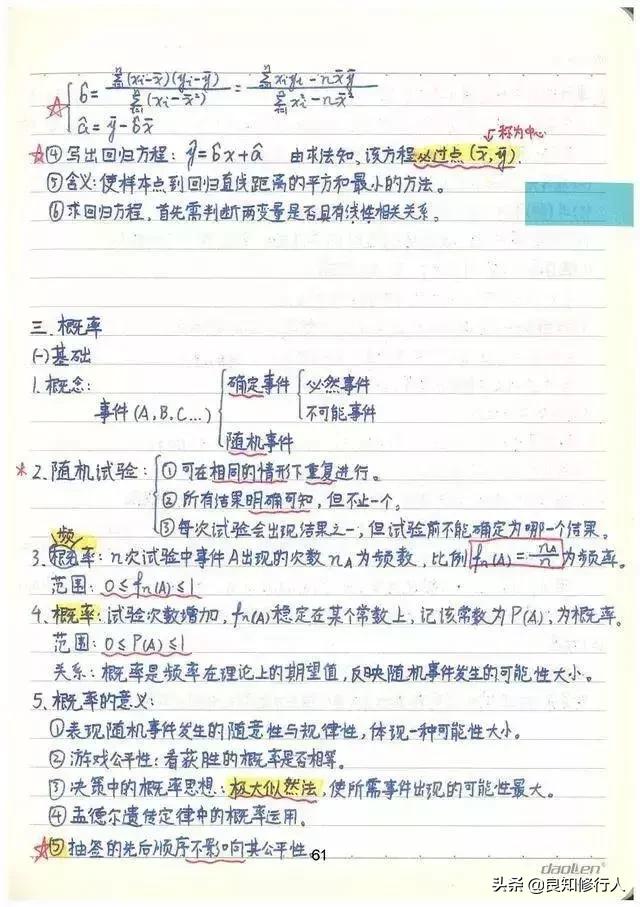 b̂ = Σ(i=1→n)(xi-x̄)(yi-ȳ) / Σ(i=1→n)(xi-x̄²) = Σ(i=1→n)xiyi-nx̄ȳ / Σ(i=1→n)xi²-nx̄²
â=ȳ-b̂x̄
称为中心
☆④写出回归方程：ŷ=b̂x+â 由求法知,该方程必过点(x̄,ȳ).
⑤含义:使样本点到回归直线距离的平方和最小的方法。
⑥求回归方程,首先需判断两变量是否具有线性相关关系。
三.概率
(一)基础
1.概念:
确定事件 必然事件
事件(A,B,C...) 不可能事件
随机事件
*2.随机试验: ①可在相同的情形下重复进行。
②所有结果明确可知,但不止一个。
③每次试验会出现结果之一,但试验前不能确定为哪一个结果。
频
3.概率:n次试验中事件A出现的次数nA为频数,比例fn(A)=nA/n为频率。
范围:0≤fn(A)≤1
4.概率:试验次数增加,fn(A)稳定在某个常数上,记该常数为P(A),为概率。
范围:0≤P(A)≤1
关系:概率是频率在理论上的期望值,反映随机事件发生的可能性大小。
5.概率的意义:
①表现随机事件发生的随意性与规律性,体现一种可能性大小。
②游戏公平性:看获胜的概率是否相等。
③决策中的概率思想:极大似然法,使所需事件出现的可能性最大。
④孟德尔遗传定律中的概率运用。
☆⑤抽签的先后顺序不影响其公平性.
61
daolen
头条 @良知修行人